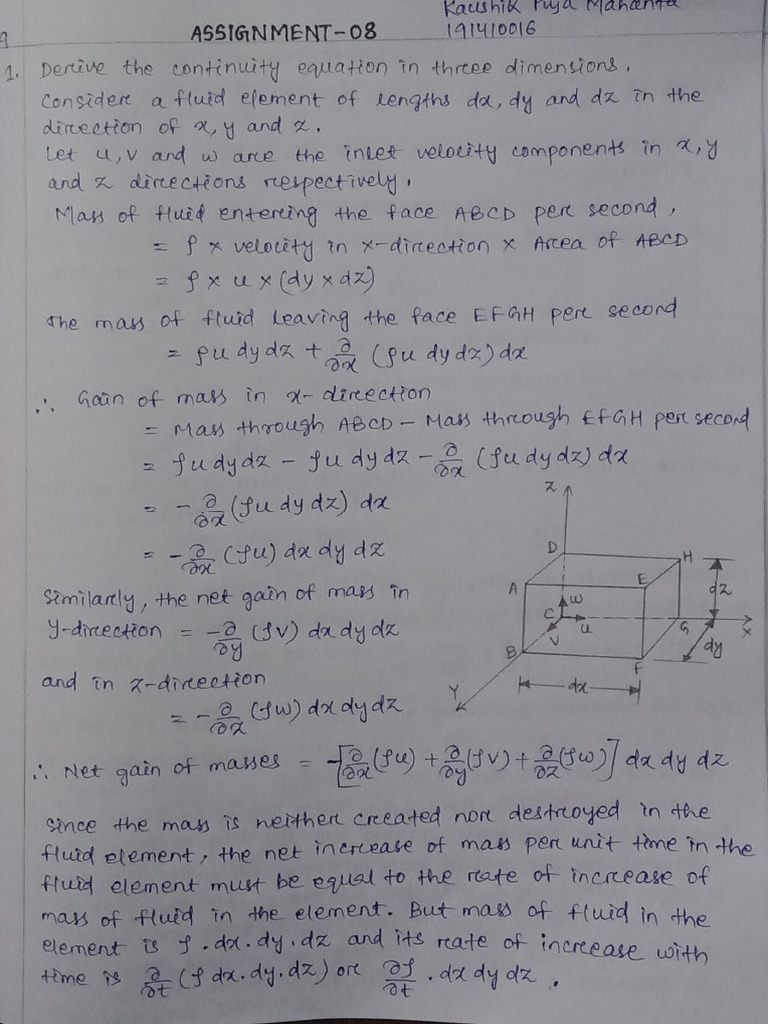 Kaushik Puja Mahanta
9 ASSIGNMENT-08 191410016
1. Derive the continuity equation in three dimensions.
Consider a fluid element of lengths dx, dy and dz in the
direction of x, y and z.
Let u, v and w are the inlet velocity components in x, y
and z directions respectively.
Mass of fluid entering the face ABCD per second,
= ρ × velocity in x-direction × Area of ABCD
= ρ × u × (dy × dz)
The mass of fluid leaving the face EFGH per second
= ρu dydz + ∂/∂x (ρu dydz) dx
∴ Gain of mass in x-direction
= Mass through ABCD - Mass through EFGH per second
= ρu dydz - ρu dydz - ∂/∂x (ρu dydz) dx
= - ∂/∂x (ρu dydz) dx
= - ∂/∂x (ρu) dx dy dz
Similarly, the net gain of mass in
y-direction = -∂/∂y (ρv) dx dy dz
and in z-direction
= - ∂/∂z (ρw) dx dy dz
Z
D H
A E dz
w
C u G X
v
B F dy
Y dx
∴ Net gain of masses = -[∂/∂x (ρu) + ∂/∂y (ρv) + ∂/∂z (ρw)] dx dy dz
Since the mass is neither created nor destroyed in the
fluid element, the net increase of mass per unit time in the
fluid element must be equal to the rate of increase of
mass of fluid in the element. But mass of fluid in the
element is ρ.dx.dy.dz and its rate of increase with
time is ∂/∂t (ρ dx.dy.dz) or ∂ρ/∂t . dx dy dz.